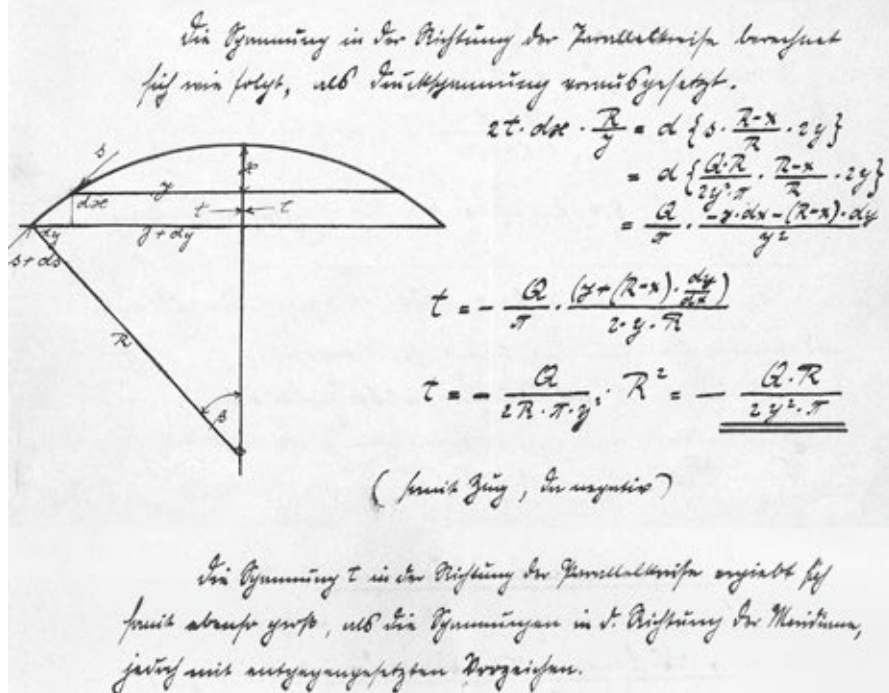 Die Spannung in der Richtung der Parallelkreise berechnet
sich wie folgt, als Druckspannung vorausgesetzt.
2t · dx · R/y = d {s · (R-x)/R · 2y}
= d {Q·R/(2y²·π) · (R-x)/R · 2y}
= Q/π · (-y·dx-(R-x)·dy)/y²
t = - Q/π · (y+(R-x)·dy/dx)/(2·y·R)
t = - Q/(2R·π·y²) · R² = - Q·R/(2y²·π)
(somit Zug, da negativ)
s
x
dx
y
t
t
dy
y+dy
s+ds
R
β
Die Spannung t in der Richtung der Parallelkreise ergiebt sich
somit ebenso groß, als die Spannungen in d. Richtung der Meridiane,
jedoch mit entgegengesetzten Vorzeichen.